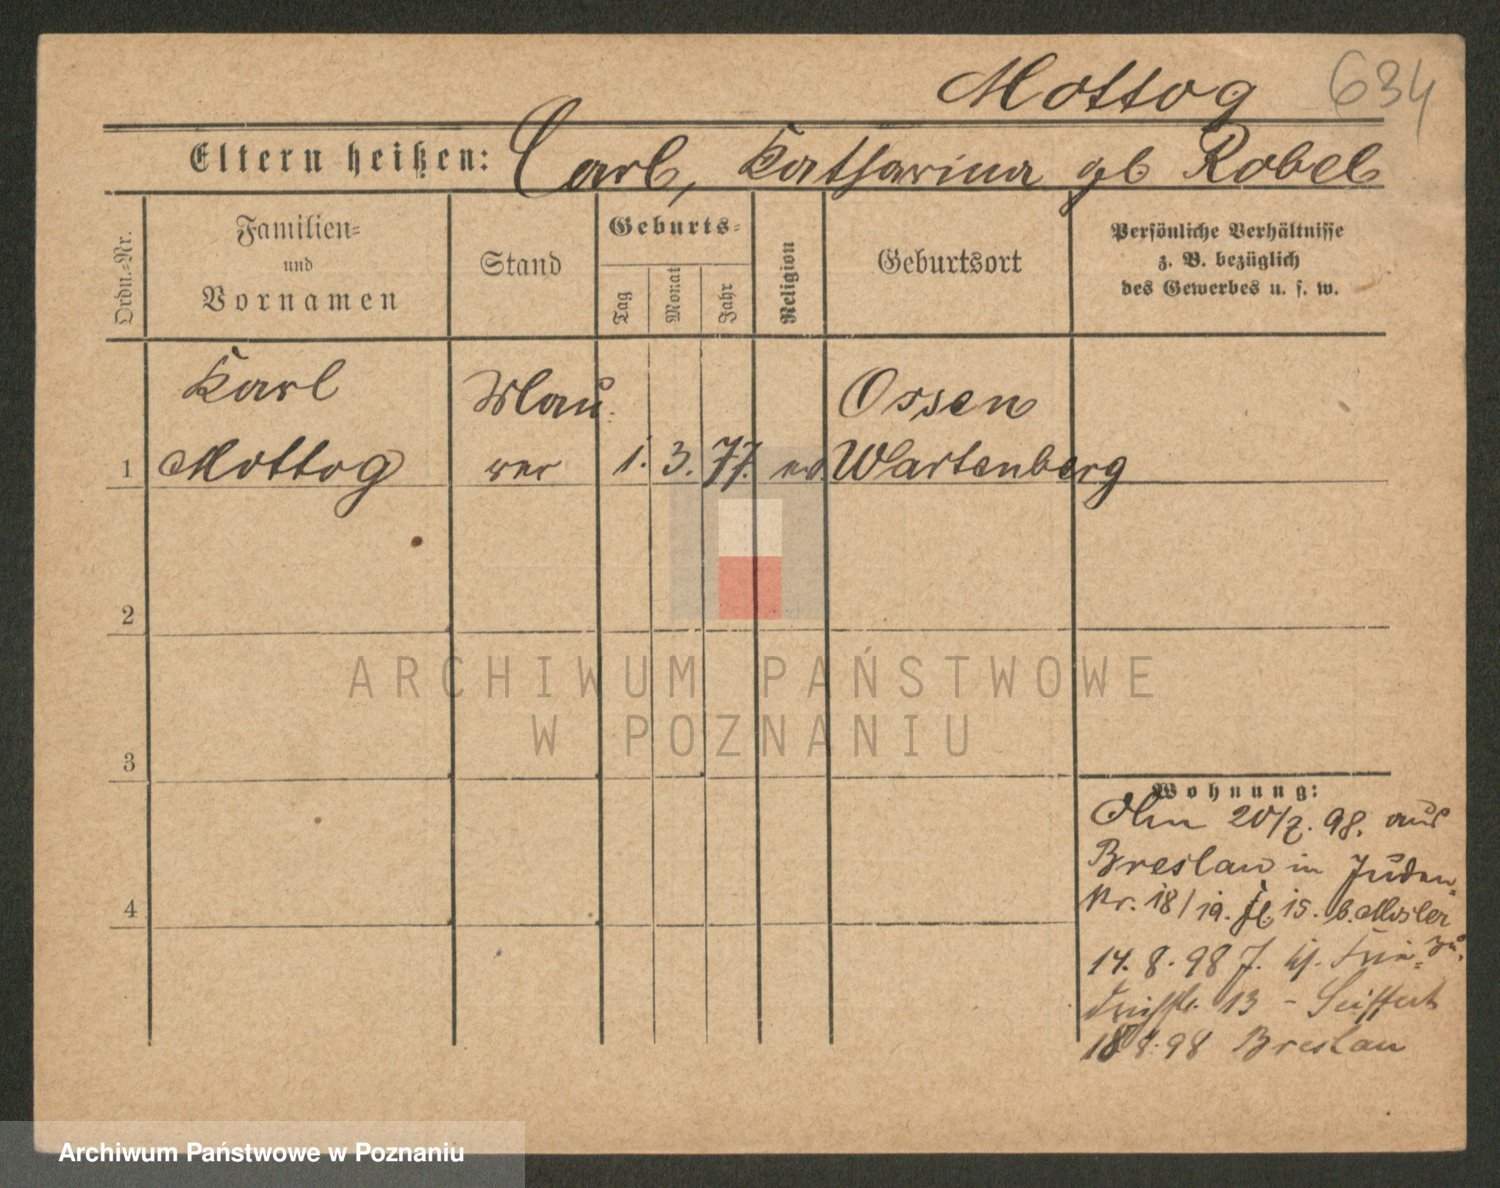 Mottog 634
Eltern heißen: Carl, Katharina gb Robel
Ordn.=Nr.
Familien=
und
Vornamen
Stand
Geburts=
Tag
Monat
Jahr
Religion
Geburtsort
Persönliche Verhältnisse
z. B. bezüglich
des Gewerbes u. s. w.
Karl Mau Ossen
1 Mottog rer 1. 3. 77. ev Wartenberg
2
3
4
ARCHIWUM PAŃSTWOWE
W POZNANIU
Wohnung:
20/7. 98. aus
Breslau in Juden
Nr. 18/19. 15. b. Mosler
14. 8. 98
13 - Seiffert
18 8. 98 Breslau
Archiwum Państwowe w Poznaniu